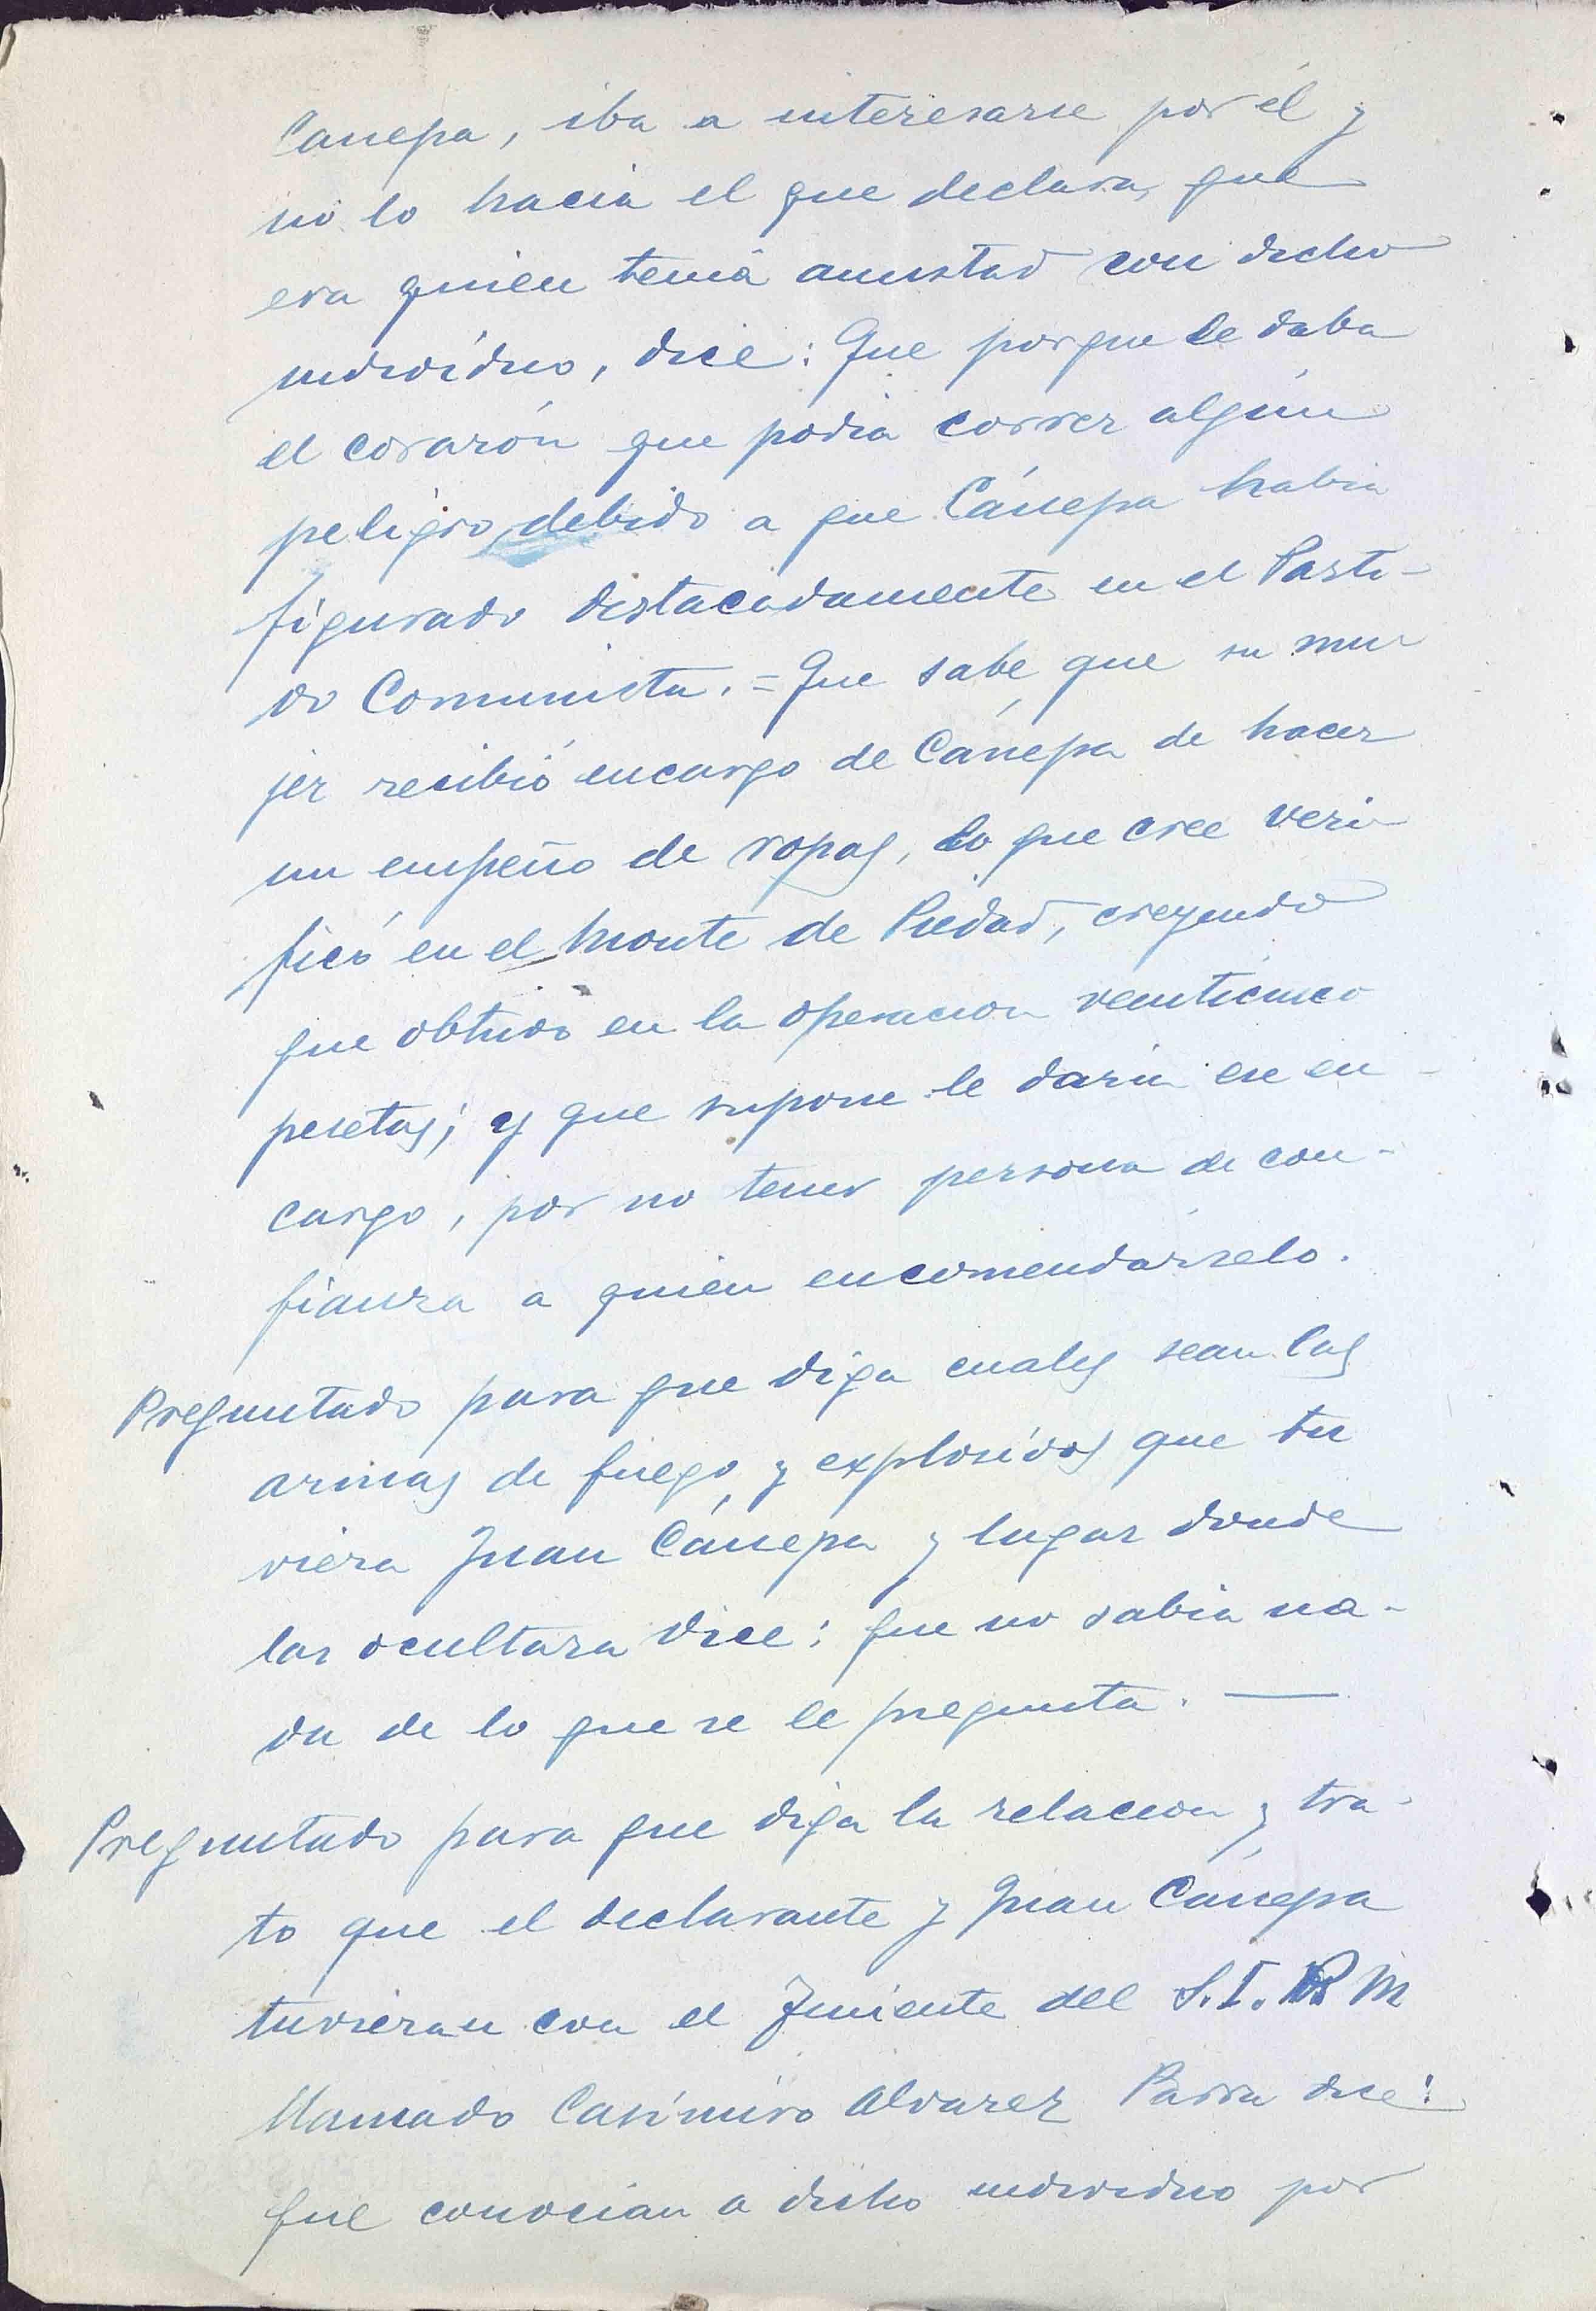 Canepa, iba a interesarse por él y
no lo hacia el que declara, que
era quien tenia amistad con dicho
individuo, dice: Que porque le daba
el corazón que podia correr algún
peligro, debido a que Cánepa habia
figurado destacadamente en el Parti-
do Comunista. = Que sabe que su mu
jer recibió encargo de Cánepa de hacer
un empeño de ropas, lo que cree veri
ficó en el Monte de Piedad, creyendo
que obtuvo en la operacion veinticinco
pesetas; y que supone le daria ese en-
cargo, por no tener persona de con-
fianza a quien encomendárselo.
Preguntado para que diga cuales sean las
armas de fuego y explosivos que tu
viera Juan Cánepa y lugar donde
las ocultara dice: que no sabia na-
da de lo que se le pregunta. —
Preguntado para que diga la relacion y tra-
to que el declarante y Juan Cánepa
tuvieran con el Teniente del S.I.P.M
llamado Casimiro Alvarez Parra dice:
que conocian a dicho individuo por